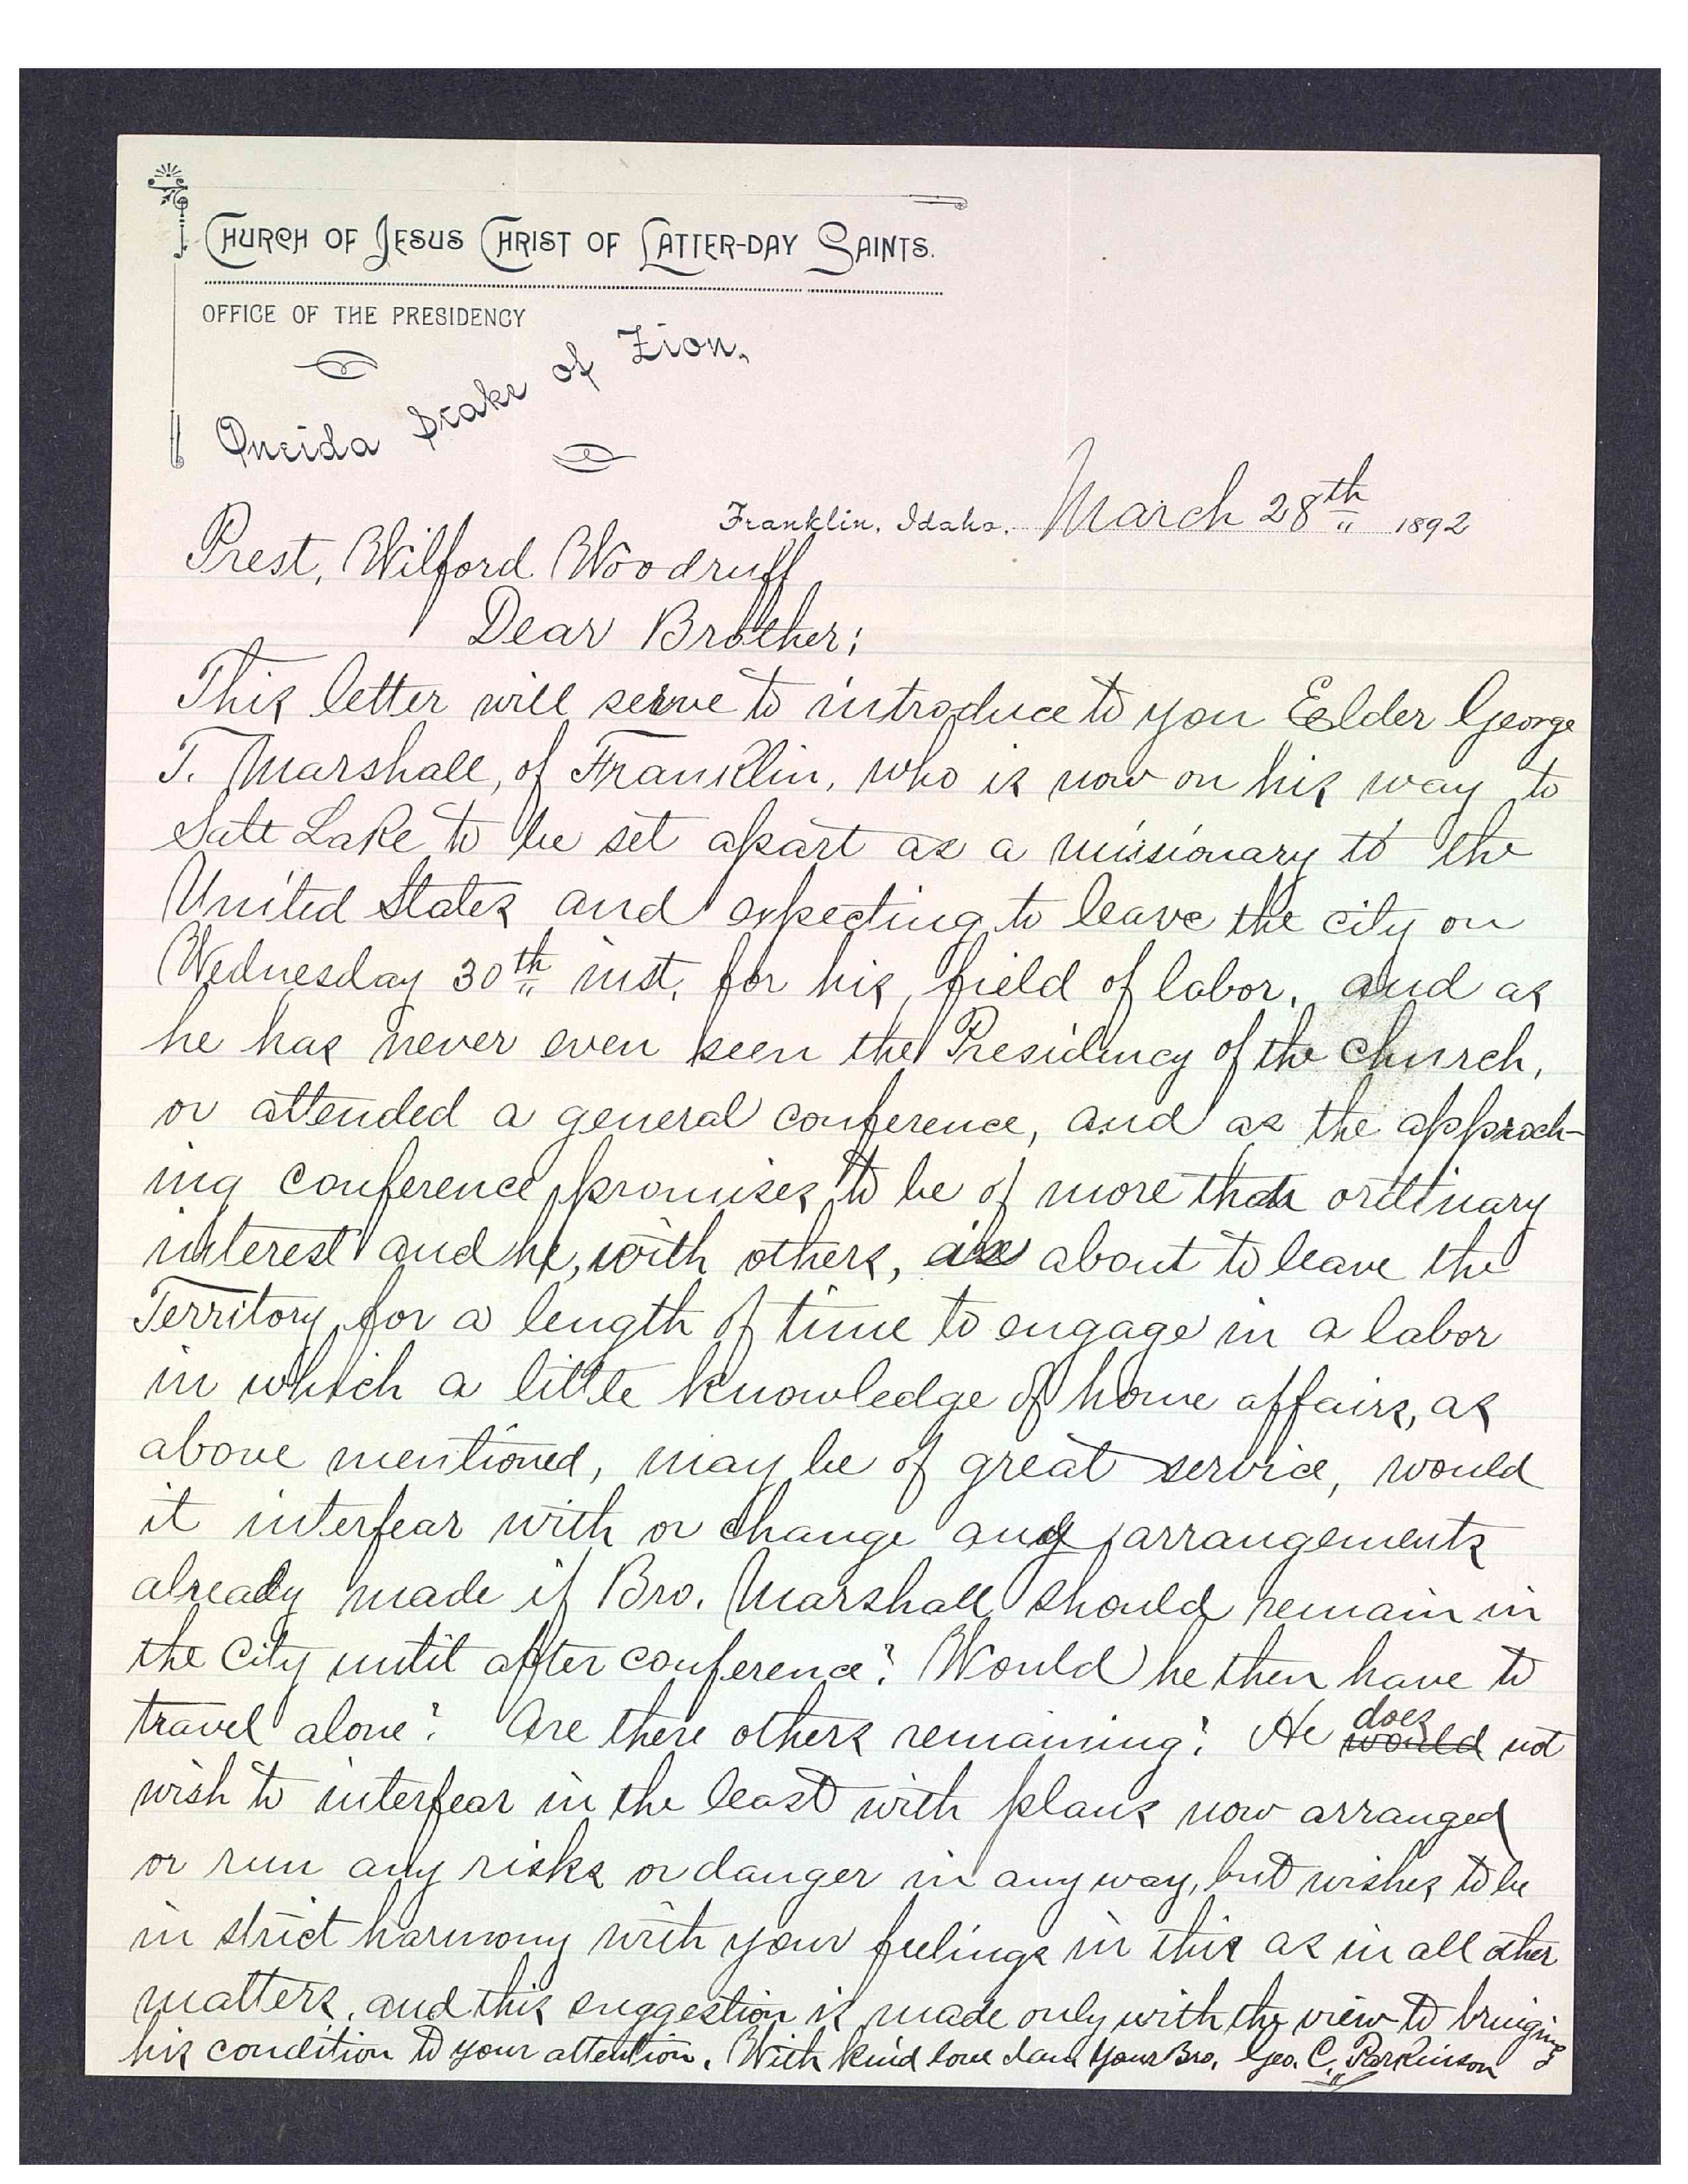 CHURCH OF JESUS CHRIST OF LATTER-DAY SAINTS.
OFFICE OF THE PRESIDENCY
Oneida Stake of Zion,
Franklin, Idaho, March 28th 1892
Prest, Wilford Woodruff
Dear Brother;
This letter will serve to introduce to you Elder George
T. Marshall, of Franklin, who is now on his way to
Salt Lake to be set apart as a missionary to the
United States and expecting to leave the city on
Wednesday 30th inst, for his field of labor, and as
he has never even seen the Presidency of the church,
or attended a general conference, and as the approch-
ing conference promises to be of more than ordinary
interest and he, with others, is about to leave the
Territory for a length of time to engage in a labor
in which a little knowledge of home affairs, as
above mentioned, may be of great service, would
it interfear with or change any arrangements
already made if Bro. Marshall should remain in
the City until after conference? Would he then have to
travel alone? Are there others remaining? He would does not
wish to interfear in the least with plans now arranged
or run any risks or danger in any way, but wishes to be
in strict harmony with your feelings in this as in all other
matters, and this suggestion is made only with the view to bringing
his condition to your attention. With kind love I am Your Bro, Geo. C. Parkinson